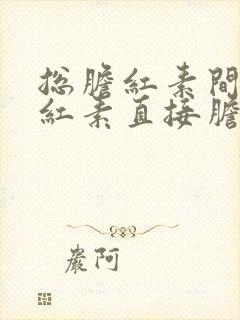 总膽紅素間
紅素直接膽
嚴阿